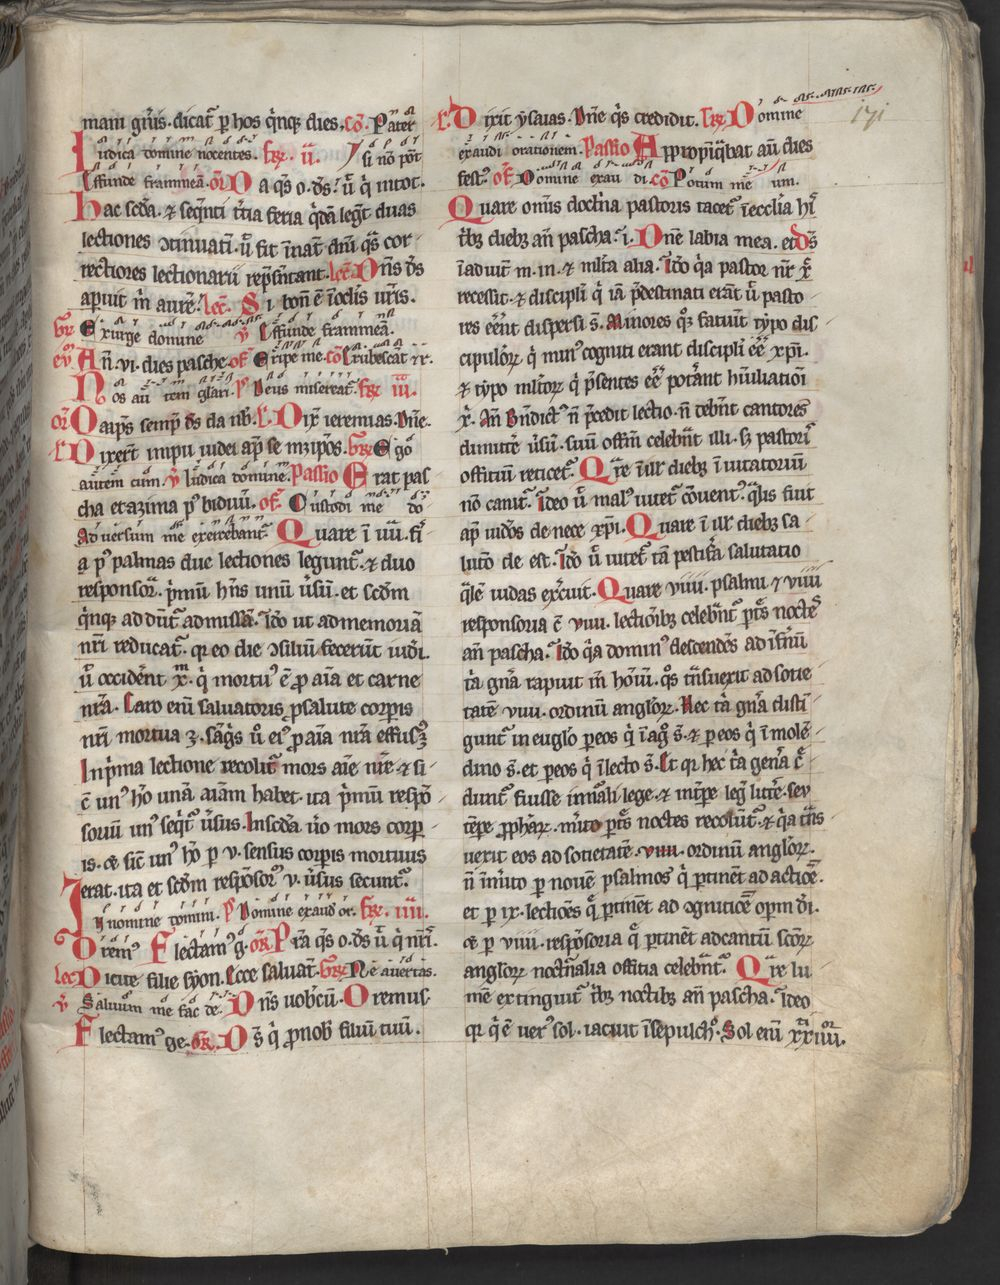 mani gn̄is. dicat᷑ ꝑ hos q̇nꝙ dies. co᷑. Pater
Iudica domine nocentes. fr̄. ii. ỳ si nō pōt
Effunde frammeā. or̄ Da qs̄ o. ds̄. ut q̇ in tot.
hac scd̄a. ⁊ seq̄nti t̄tia feria q̇dā legūt duas
lectiones ↄtinuati.
rectiores lectionarii rep̄sn̄tant. lec̄. Dn̄s ds̄
apuit m̄ aurē. lec̄. Si bon̄ ē ī oc̄lis ur̄is.
Gr̄ Exurge domine ỳ Effunde frammeā.
eu᷑ An̄. vi. dies pasche. of᷑ Eripe me. co᷑ Erubescāt ⁊c.
Nos au᷑ tem glāri. p̄ Deus misereat᷑. fr̄. iii.
or̄ Oaip̄s semp̄ ds̄ da nb̄. l᷑. Dix̄ ieremias. Dn̄e.
l᷑ Dixert̄ impii iudei ap̄ se Gr̄ Ego
autem cum. ỳ Iudica domine. Passio Erat pas
cha et azima pꝰ biduū. of᷑. Custodi me do
Aduersum me exercebant᷑. Quare ī
a pꝰ palmas due lectiones legunt᷑. ⁊ duo
responsor̄. p̄mū hn̄s unū ūsū. et scd̄m
q̇nꝙ ad dūt᷑ ad missā. Iō ut ad memoriā
nr̄i reducat᷑. qr eo die ↄsiliū fecerūt iud̄i.
ut̄ occidēnt x̄m. q̇ mortuꝰ ē ꝓ aīa et carne
nr̄a. Caro enī saluatoris ꝓ salute corꝑis
nr̄i mortua ꝫ. sāgs̄ ū eiꝰ ꝓ aīa nr̄a effusꝰ ꝫ
In p̄ma lectione recolit᷑ mors aīe nr̄e ⁊ si
c̄ unꝰ hō unā aīam habet. ita p̄mū respō
soriū unꝰ seq̄t᷑ ūsus. In scd̄a ūo mors corꝑ
is. et sic̄ unꝰ hō ꝑ v. sensus corꝑis mortuus
erat. ita et scd̄m respōsor̄ v. ūsus secunt᷑.
In nomine domini. p̄ Domine exaud or̄. fr̄. iiii.
Oremꝰ Flectamꝰ g̊. or̄ Pr̄a qs̄ o. ds̄ ut̄ q̇ nr̄i.
lec̄ Dicite filie syon. Ecce saluat᷑. Gr̄ Ne auertas.
ỳ Saluum me fac de. Dn̄s uobcū. Oremus.
Flectamꝰ ge. or̄. Ds̄ q̇ ꝓ nob̄ filiū tuū.
l᷑. Dixit ysaias. Dn̄e qs̄ credidit. Gr̄ Domine
exaudi orationem. Passio Appropiq̄bat au᷑ dies
festꝰ. of᷑ Domine exau di. co᷑ Potum me um.
Quare om̄is doct̄na pastoris tacet᷑ ī ecclīa hī
t̄bꝫ diebꝫ an̄ pascha. i. Dn̄e labia mea. et Ds̄
ī adiut̄ m. in. ⁊ ml̄ta alia. Iō q̇a pastor nr̄ x̄
recessit. ⁊ discipl̄i q̇ iā p̄destinati erāt ut̄ pasto
res eēnt dispersi s̄. Minores qͦꝫ fatiūt typo dis
cipulor̄. q̇ minꝰ cogniti erant discipl̄i eē xp̄i.
⁊ typo mīor̄. q̇ p̄sentes eē potāt humiliatiōi
x̄. An̄ Bn̄dictꝰ n̄ p̄cedit lectio. n̄ debn̄t cantores
dimitt̄e ūsū. suū offm̄ celebn̄t illi. sꝫ pastoris
offitiū reticet᷑. Qr̄e ī ill᷑ diebꝫ īuitatoriū
nō canit᷑. Ideo ut̄ malꝰ uitet᷑ cōuentꝰ. q̄lis fuit
ap̄ iud̄os de nece xp̄i. Quare ī ill᷑ diebꝫ sa
lutō de est. Iō ut̄ uitet᷑ tā pestif̄a salutatio
q̄lē iudas ex̄cuit. Quare viiii. psalmi ⁊ viiii
responsoria c̄ viiii. lectiōibꝫ celebn̄t᷑ pt̄s noctes
an̄ pascha. Iō q̇a dominꝰ descendēs ad īfn̄ū
t̄a gn̄a rapuit m̄ hoīū. qͦs tn̄suexit ad sotie
tatē viiii. ordinū anglor̄. Hec t̄a gn̄a disti
gunt᷑ in euglō ꝑ eos q̇ ī agͦ s̄. ⁊ ꝑ eos q̇ ī molē
dino s̄. et ꝑ eos q̇ ī lecto s̄. Et qr hec t̄a gen̄a c̄
dunt᷑ fuisse ī nat̄ali lege. ⁊ in tp̄e leḡ litt̄e. seu
tēpe ꝓphar̄. m̄ito pt̄s noctes recolūt᷑. ⁊ q̇a t̄ns
uexit eos ad sotietatē. viiii. ordinū anglor̄.
n̄ im̄ito ꝑ nouē psalmos q̇ ꝑtinēt ad actiōē.
et ꝑ ix. lectiōes q̄ ꝑtinēt ad ↄgnitiōē opm̄ d̄i.
et ꝑ viiii. respōsoria q̄ ꝑtinēt ad cantū scōr̄
anglor̄ noct̄nalia offitia celebn̄t᷑. Qr̄e lu
mē extinguit᷑ t̄bꝫ noctibꝫ an̄ pascha. Ideo
qr q̇ ē uerꝰ sol. iacuit ī sepulchͦ. Sol enī xxiiii.
171